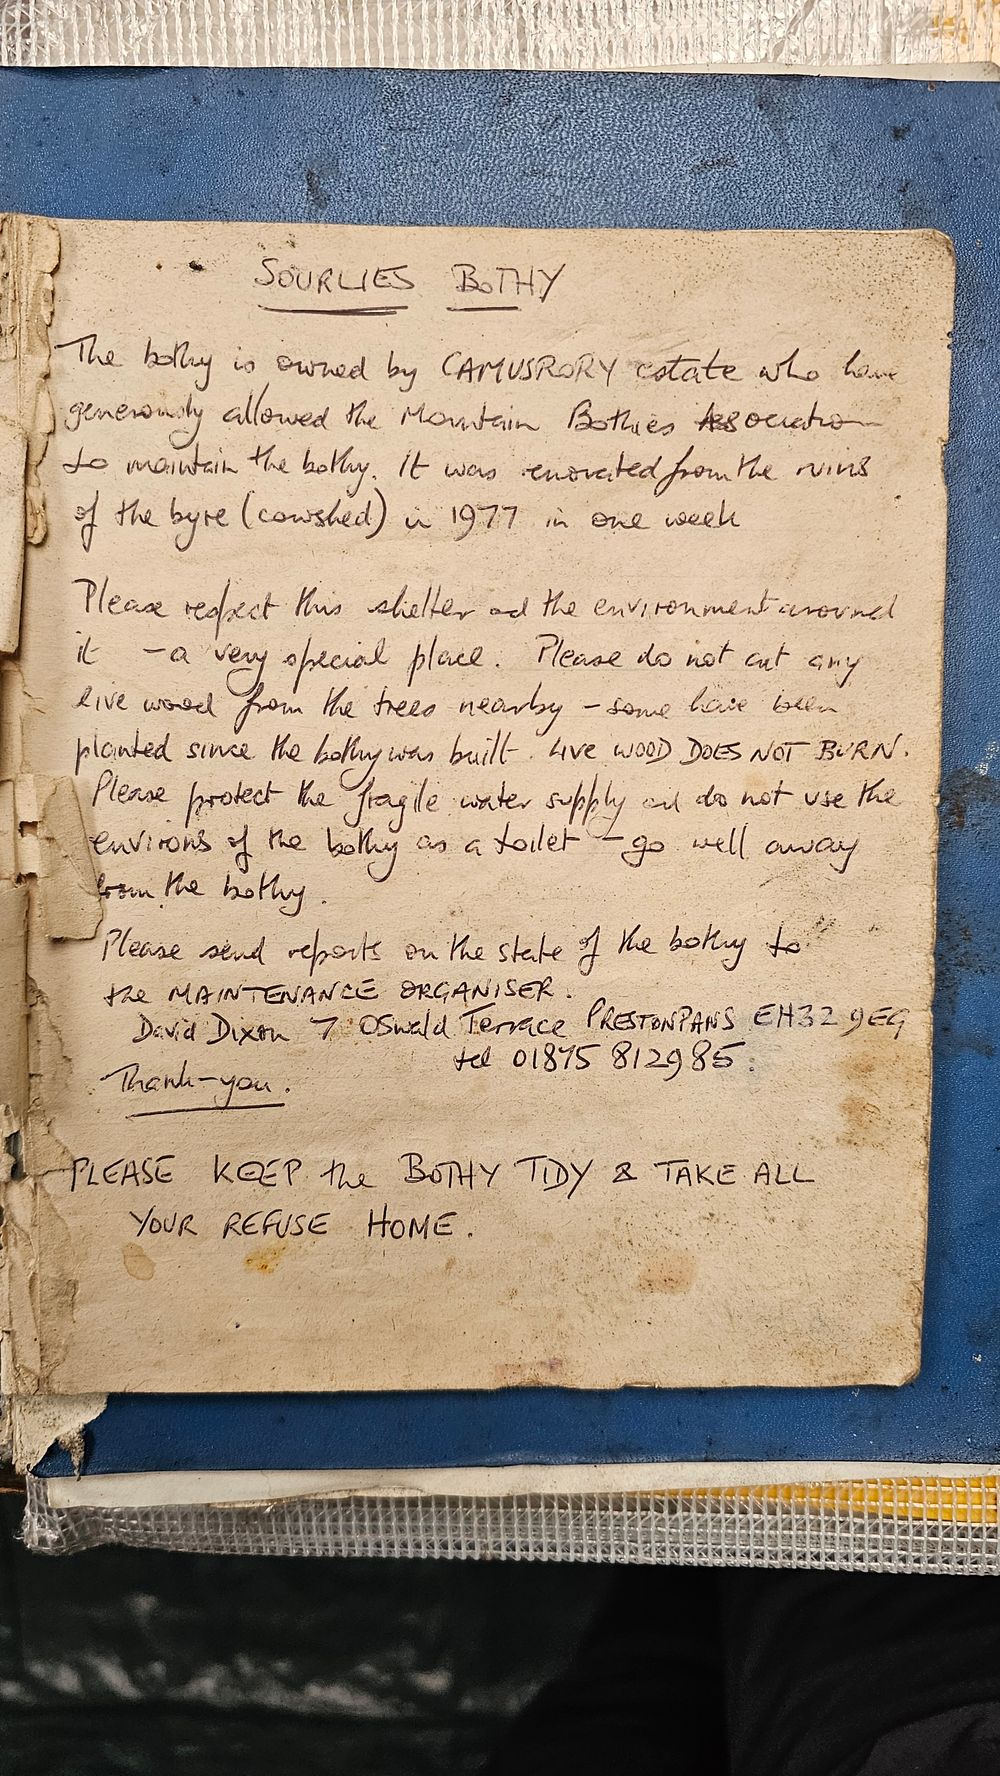 SOURLIES BOTHY
The bothy is owned by CAMUSRORY estate who have
generously allowed the Mountain Bothies Association
to maintain the bothy. It was renovated from the ruins
of the byre (cowshed) in 1977 in one week
Please respect this shelter and the environment around
it - a very special place. Please do not cut any
live wood from the trees nearby - some have been
planted since the bothy was built. LIVE WOOD DOES NOT BURN.
Please protect the fragile water supply and do not use the
environs of the bothy as a toilet - go well away
from the bothy.
Please send reports on the state of the bothy to
the MAINTENANCE ORGANISER.
David Dixon 7 Oswald Terrace PRESTONPANS EH32 9EG
tel 01875 812985.
Thank-you.
PLEASE KEEP the BOTHY TIDY & TAKE ALL
YOUR REFUSE HOME.